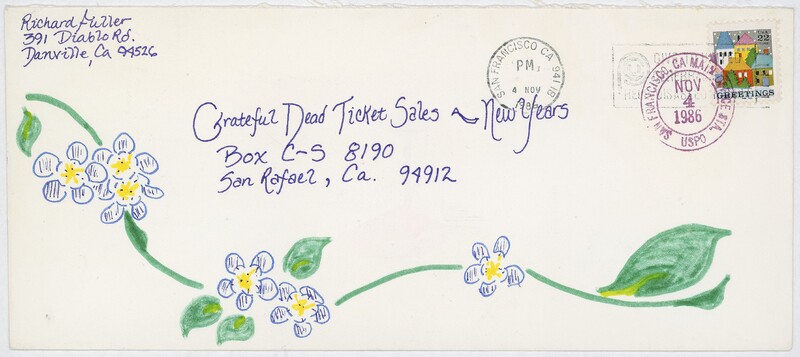 Richard Fuller
391 Diablo Rd.
Danville, Ca 94526
SAN FRANCISCO CA 941
PM
4 NOV
1986
22
GREETINGS
SAN FRANCISCO, CA MAIN STA.
NOV
4
1986
USPO
Grateful Dead Ticket Sales ~ New Years
Box C-S 8190
San Rafael, Ca. 94912